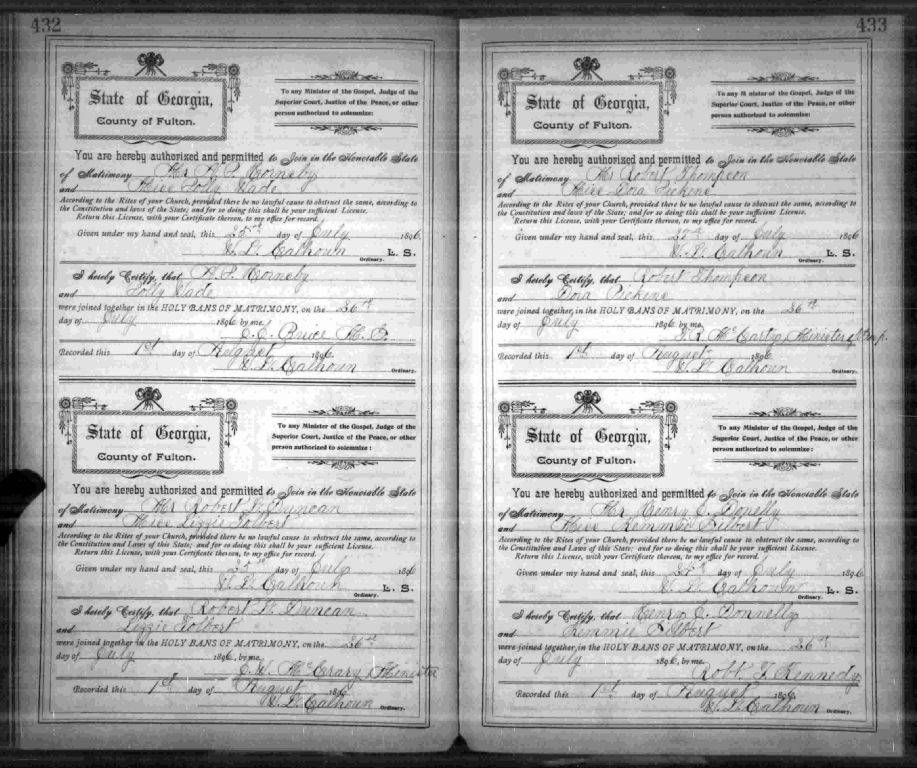 432
State of Georgia,
County of Fulton.
To any Minister of the Gospel, Judge of the
Superior Court, Justice of the Peace, or other
person authorized to solemnize:
You are hereby authorized and permitted to Join in the Honorable State
of Matrimony Mr A. P. Cornsby
and Miss Lolly Wade
According to the Rites of your Church, provided there be no lawful cause to obstruct the same, according to
the Constitution and laws of the State; and for so doing this shall be your sufficient License.
Return this License, with your Certificate thereon, to my office for record.
Given under my hand and seal, this 25th day of July 1896
Calhoun L. S.
Ordinary.
I hereby Certify, that Cornsby
and Lolly Wade
were joined together in the HOLY BANS OF MATRIMONY, on the 26th
day of July 1896 by me,
Recorded this 1st day of August 1896
Calhoun Ordinary.
State of Georgia,
County of Fulton.
To any Minister of the Gospel, Judge of the
Superior Court, Justice of the Peace, or other
person authorized to solemnize:
You are hereby authorized and permitted to Join in the Honorable State
of Matrimony Mr Robert Duncan
and Miss Lizzie Tolbert
According to the Rites of your Church, provided there be no lawful cause to obstruct the same, according to
the Constitution and Laws of this State; and for so doing this shall be your sufficient License.
Return this License, with your Certificate thereon, to my office for record.
Given under my hand and seal, this 25th day of July 1896
Calhoun L. S.
Ordinary.
I hereby Certify, that Robert Duncan
and Lizzie Tolbert
were joined together in the HOLY BANS OF MATRIMONY, on the 26th
day of July 1896, by me,
McCrary Minister
Recorded this 1st day of August 1896
Calhoun Ordinary.
433
State of Georgia,
County of Fulton.
To any Minister of the Gospel, Judge of the
Superior Court, Justice of the Peace, or other
person authorized to solemnize:
You are hereby authorized and permitted to Join in the Honorable State
of Matrimony Mr Robert Thompson
and Miss Dora Pickens
According to the Rites of your Church, provided there be no lawful cause to obstruct the same, according to
the Constitution and laws of the State; and for so doing this shall be your sufficient License.
Return this License, with your Certificate thereon, to my office for record.
Given under my hand and seal, this 25th day of July 1896
Calhoun L. S.
Ordinary.
I hereby Certify, that Robert Thompson
and Dora Pickens
were joined together, in the HOLY BANS OF MATRIMONY, on the 26th
day of July 1896 by me,
McCarty, Minister of Gosp.
Recorded this 1st day of August 1896
Calhoun Ordinary.
State of Georgia,
County of Fulton.
To any Minister of the Gospel, Judge of the
Superior Court, Justice of the Peace, or other
person authorized to solemnize:
You are hereby authorized and permitted to Join in the Honorable State
of Matrimony Mr Henry C. Donelly
and Miss Remmie Filbert
According to the Rites of your Church, provided there be no lawful cause to obstruct the same, according to
the Constitution and Laws of this State; and for so doing this shall be your sufficient License.
Return this License, with your Certificate thereon, to my office for record.
Given under my hand and seal, this 25th day of July 1896
Calhoun L. S.
Ordinary.
I hereby Certify, that Henry C. Donnelly
and Remmie Filbert
were joined together, in the HOLY BANS OF MATRIMONY, on the 26th
day of July 1896, by me,
Robt. Kennedy
Recorded this 1st day of August 1896
Calhoun Ordinary.